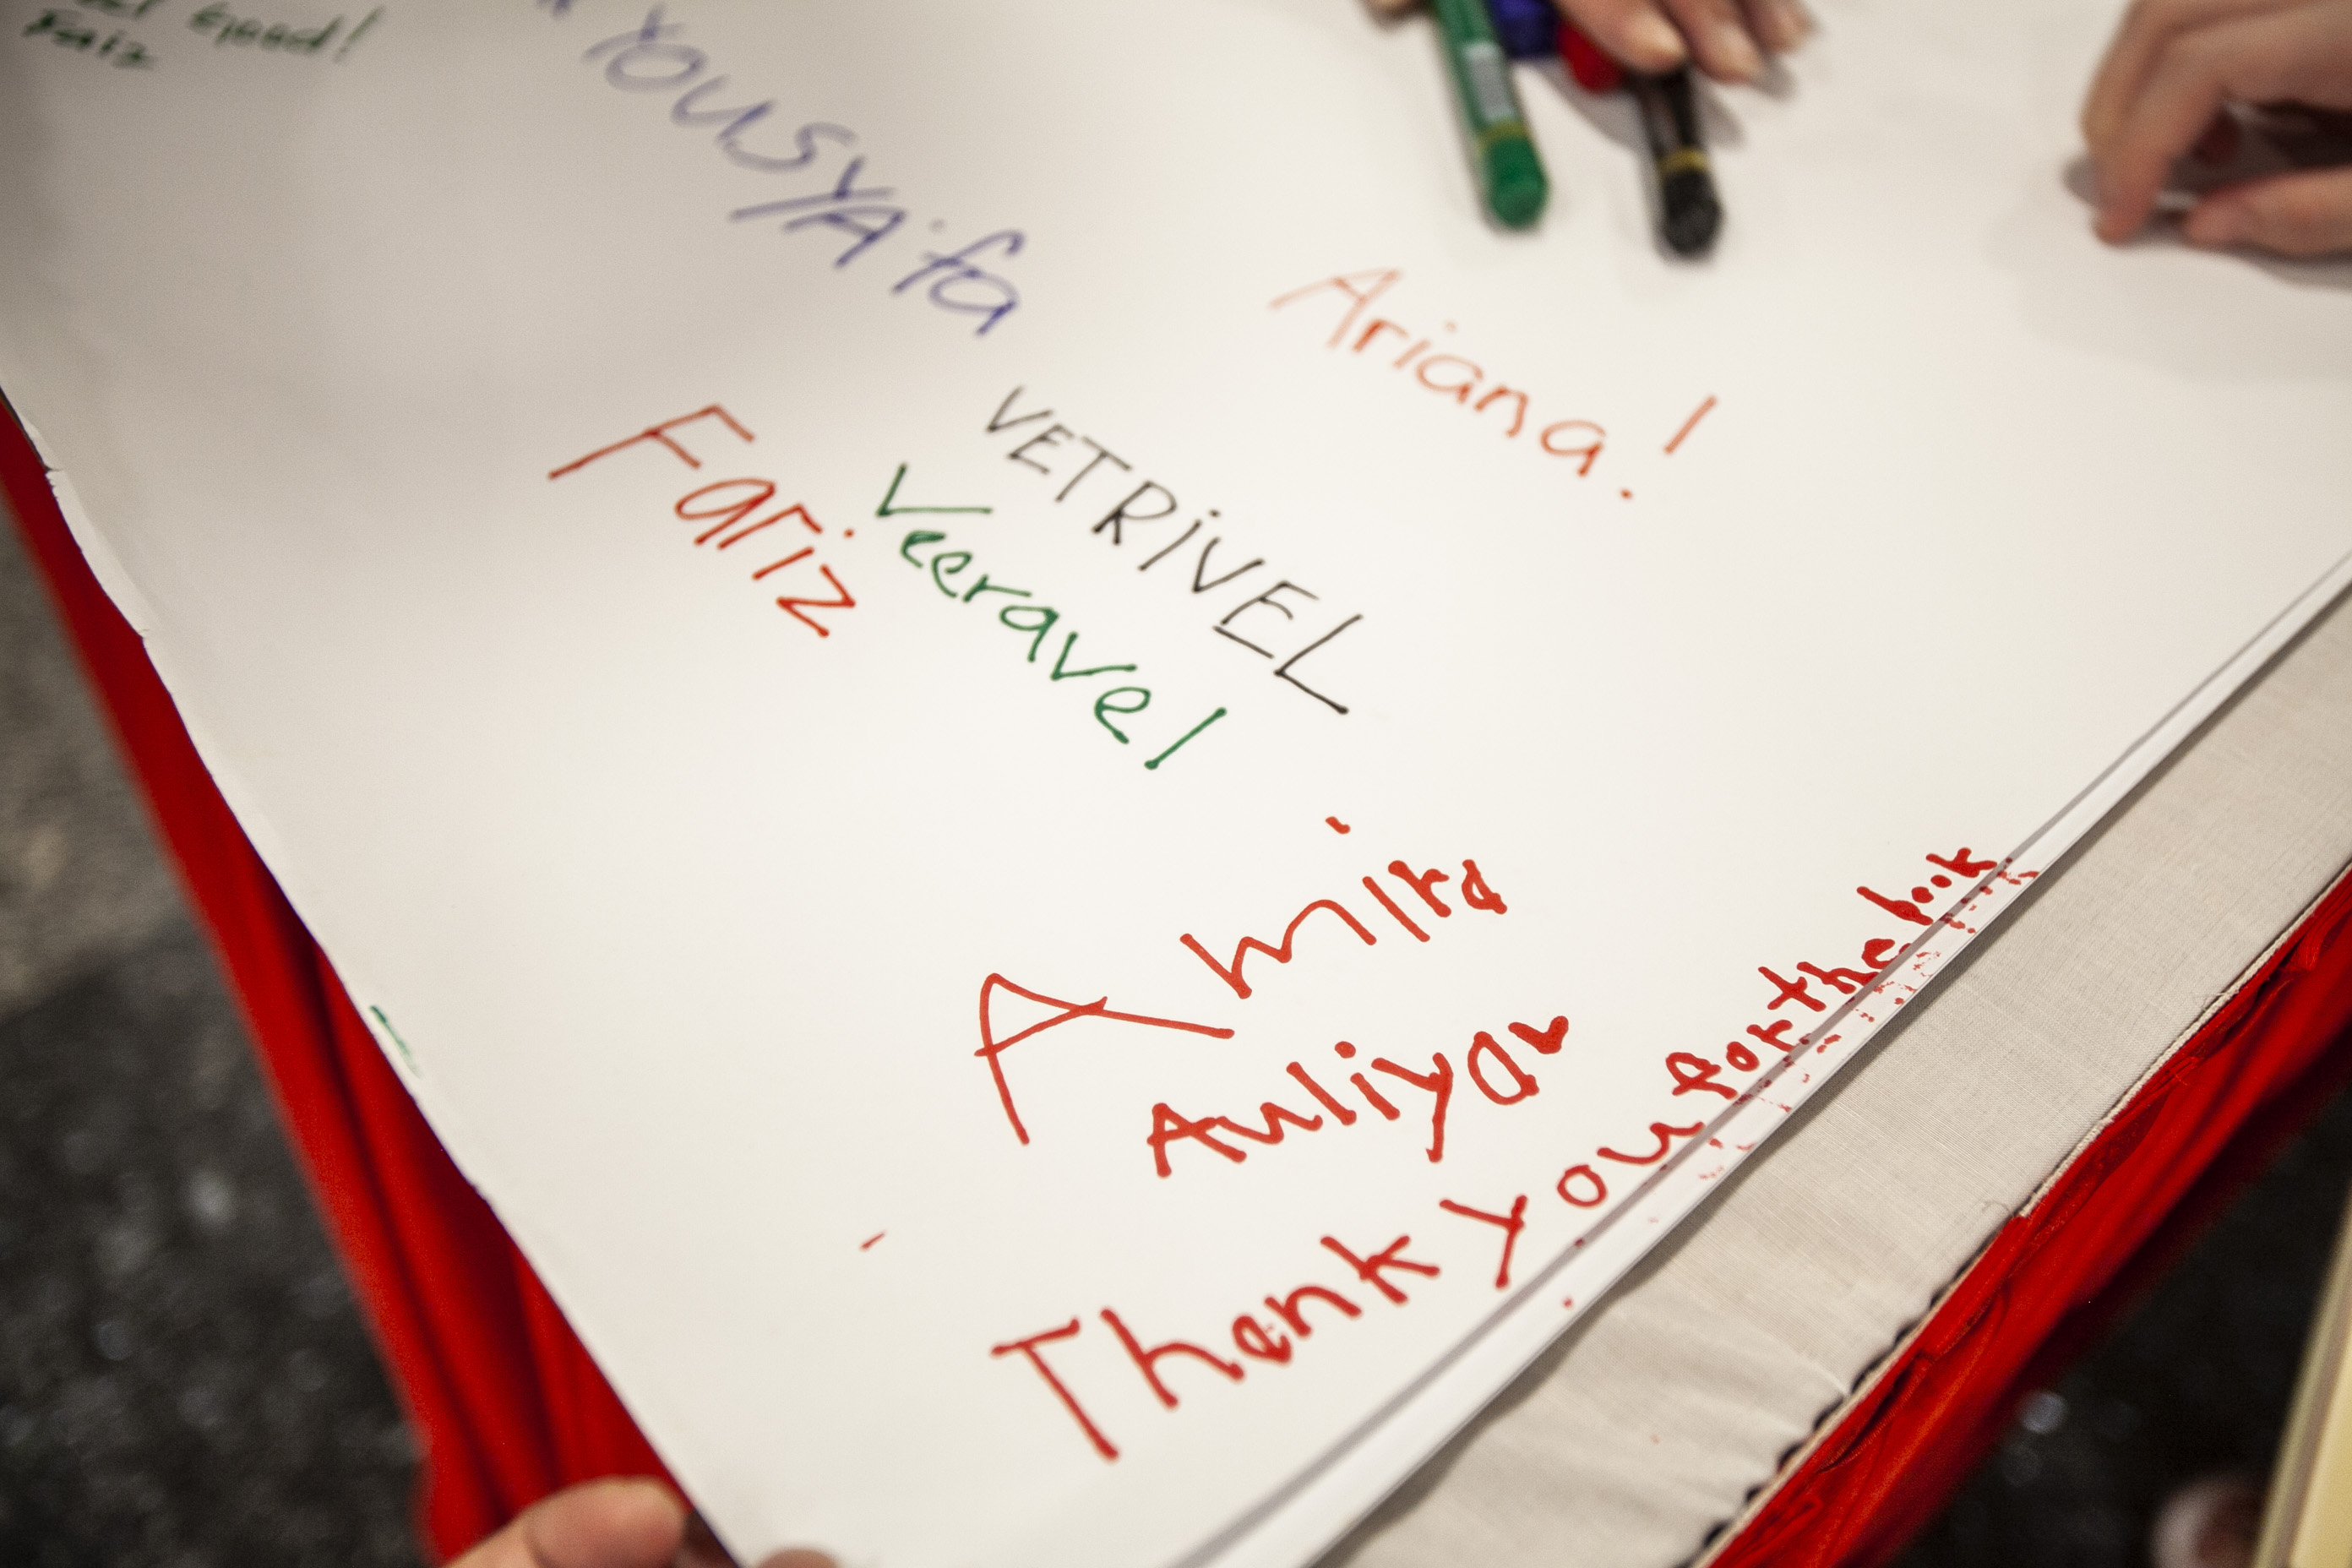 Good!
Fariz
Yousyaifa
Ariana!
VETRIVEL
Fariz
Veeravel
Amika
Auliya
Thank you for the book